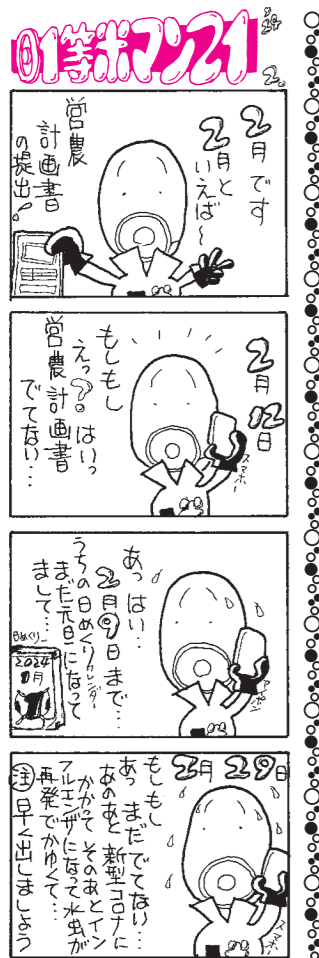 1等米マンスイ
2月です
2月と
いえば〜
営農
計画書
の提出!
2月12日
もしもし
えっ?はいっ
営農計画書
でてない…
スマホ
あっはい…
2月9日まで…
うちの日めくりカレンダー
まだ元旦になって
まして…
日めくり
2024
1月
1
スマホ
2月29日
もしもし
あっまだでてない…
あのあと新型コロナに
かかってそのあとイン
フルエンザになって水虫が
再発でかゆくて…
注早く出しましょう
スマホ